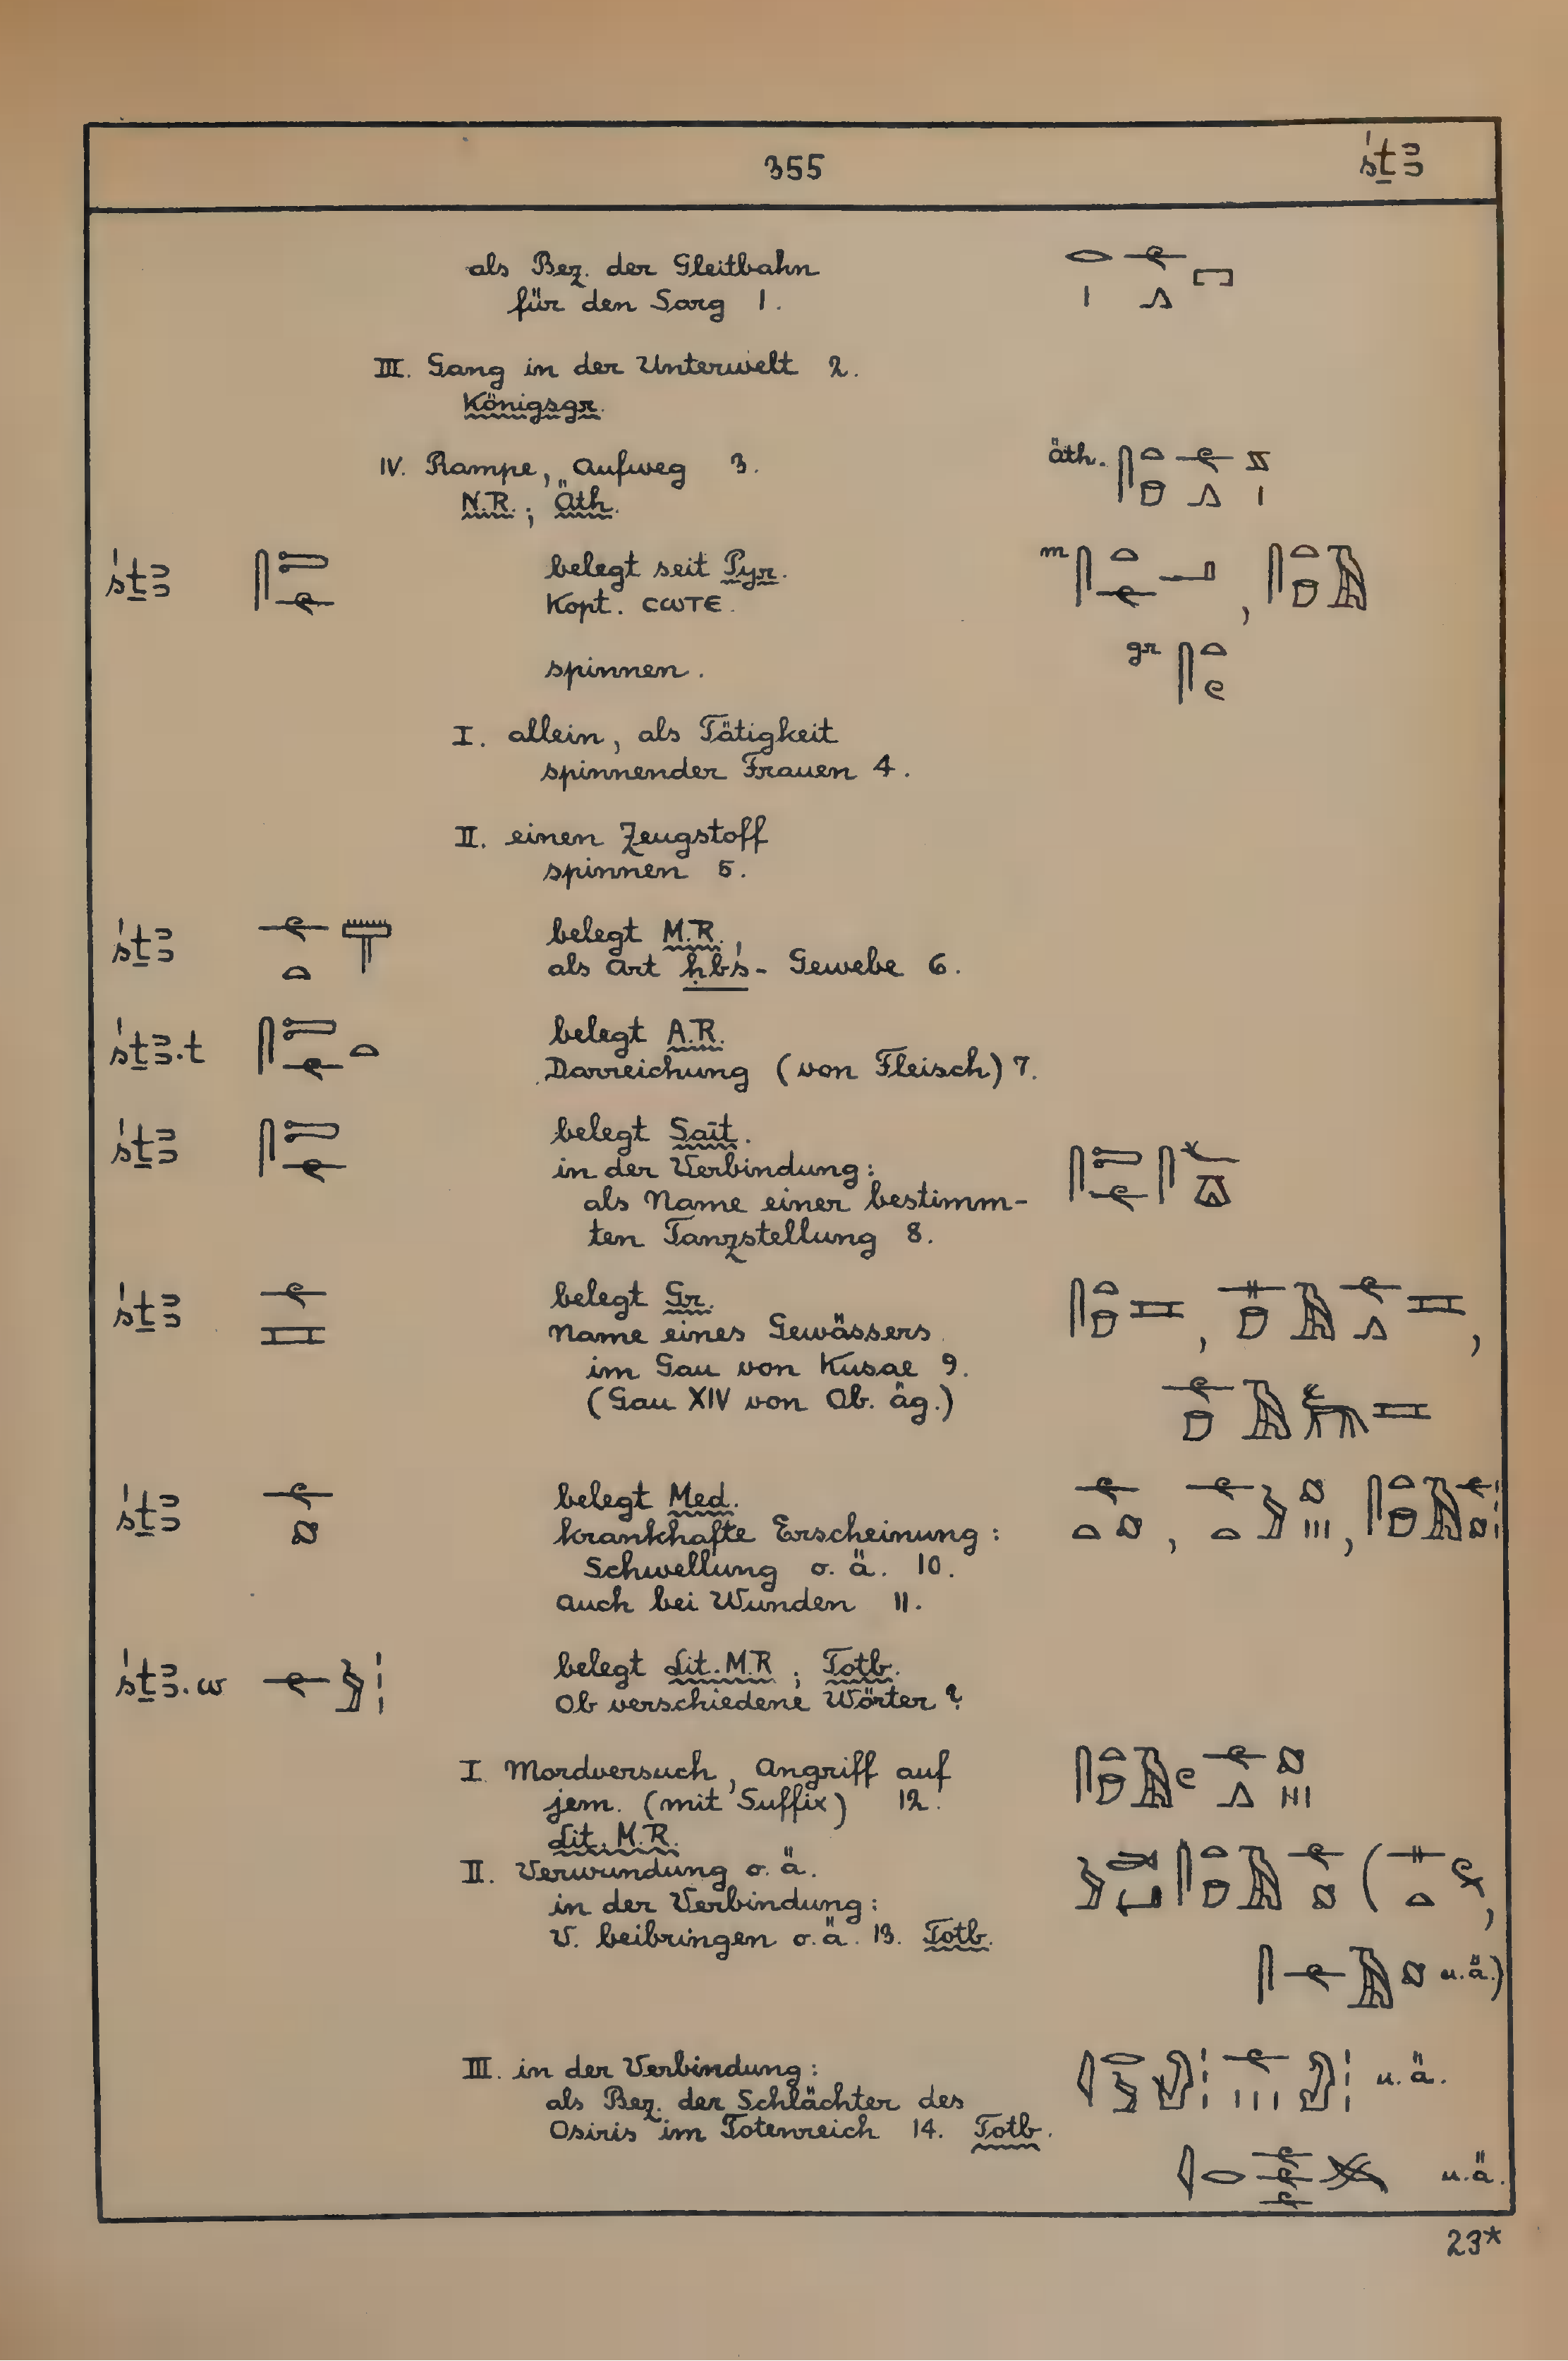 355 śṯꜣ
als Bez. der Gleitbahn
für den Sarg 1.
III. Gang in der Unterwelt 2.
Königsgr.
IV. Rampe, Aufweg 3. äth.
N.R.; Äth.
śṯꜣ belegt seit Pyr. m
Kopt. ⲥⲱⲧⲉ.
gr
spinnen.
I. allein, als Tätigkeit
spinnender Frauen 4.
II. einen Zeugstoff
spinnen 5.
śṯꜣ belegt M.R.,
als Art ḥbś- Gewebe 6.
śṯꜣ.t belegt A.R.
Darreichung (von Fleisch) 7.
śṯꜣ belegt Saït.
in der Verbindung:
als Name einer bestimm-
ten Tanzstellung 8.
śṯꜣ belegt Gr.
Name eines Gewässers
im Gau von Kusae 9.
(Gau XIV von Ob. äg.)
śṯꜣ belegt Med.
krankhafte Erscheinung:
Schwellung o. ä. 10.
auch bei Wunden 11.
śṯꜣ.w belegt Lit. M.R; Totb.
Ob verschiedene Wörter?
I. Mordversuch, Angriff auf
jem. (mit Suffix) 12.
Lit. M.R.
II. Verwundung o. ä.
in der Verbindung:
V. beibringen o.ä. 13. Totb.
u.ä.)
III. in der Verbindung: u.ä.
als Bez. der Schlächter des
Osiris im Totenreich 14. Totb.
u.ä.
23*